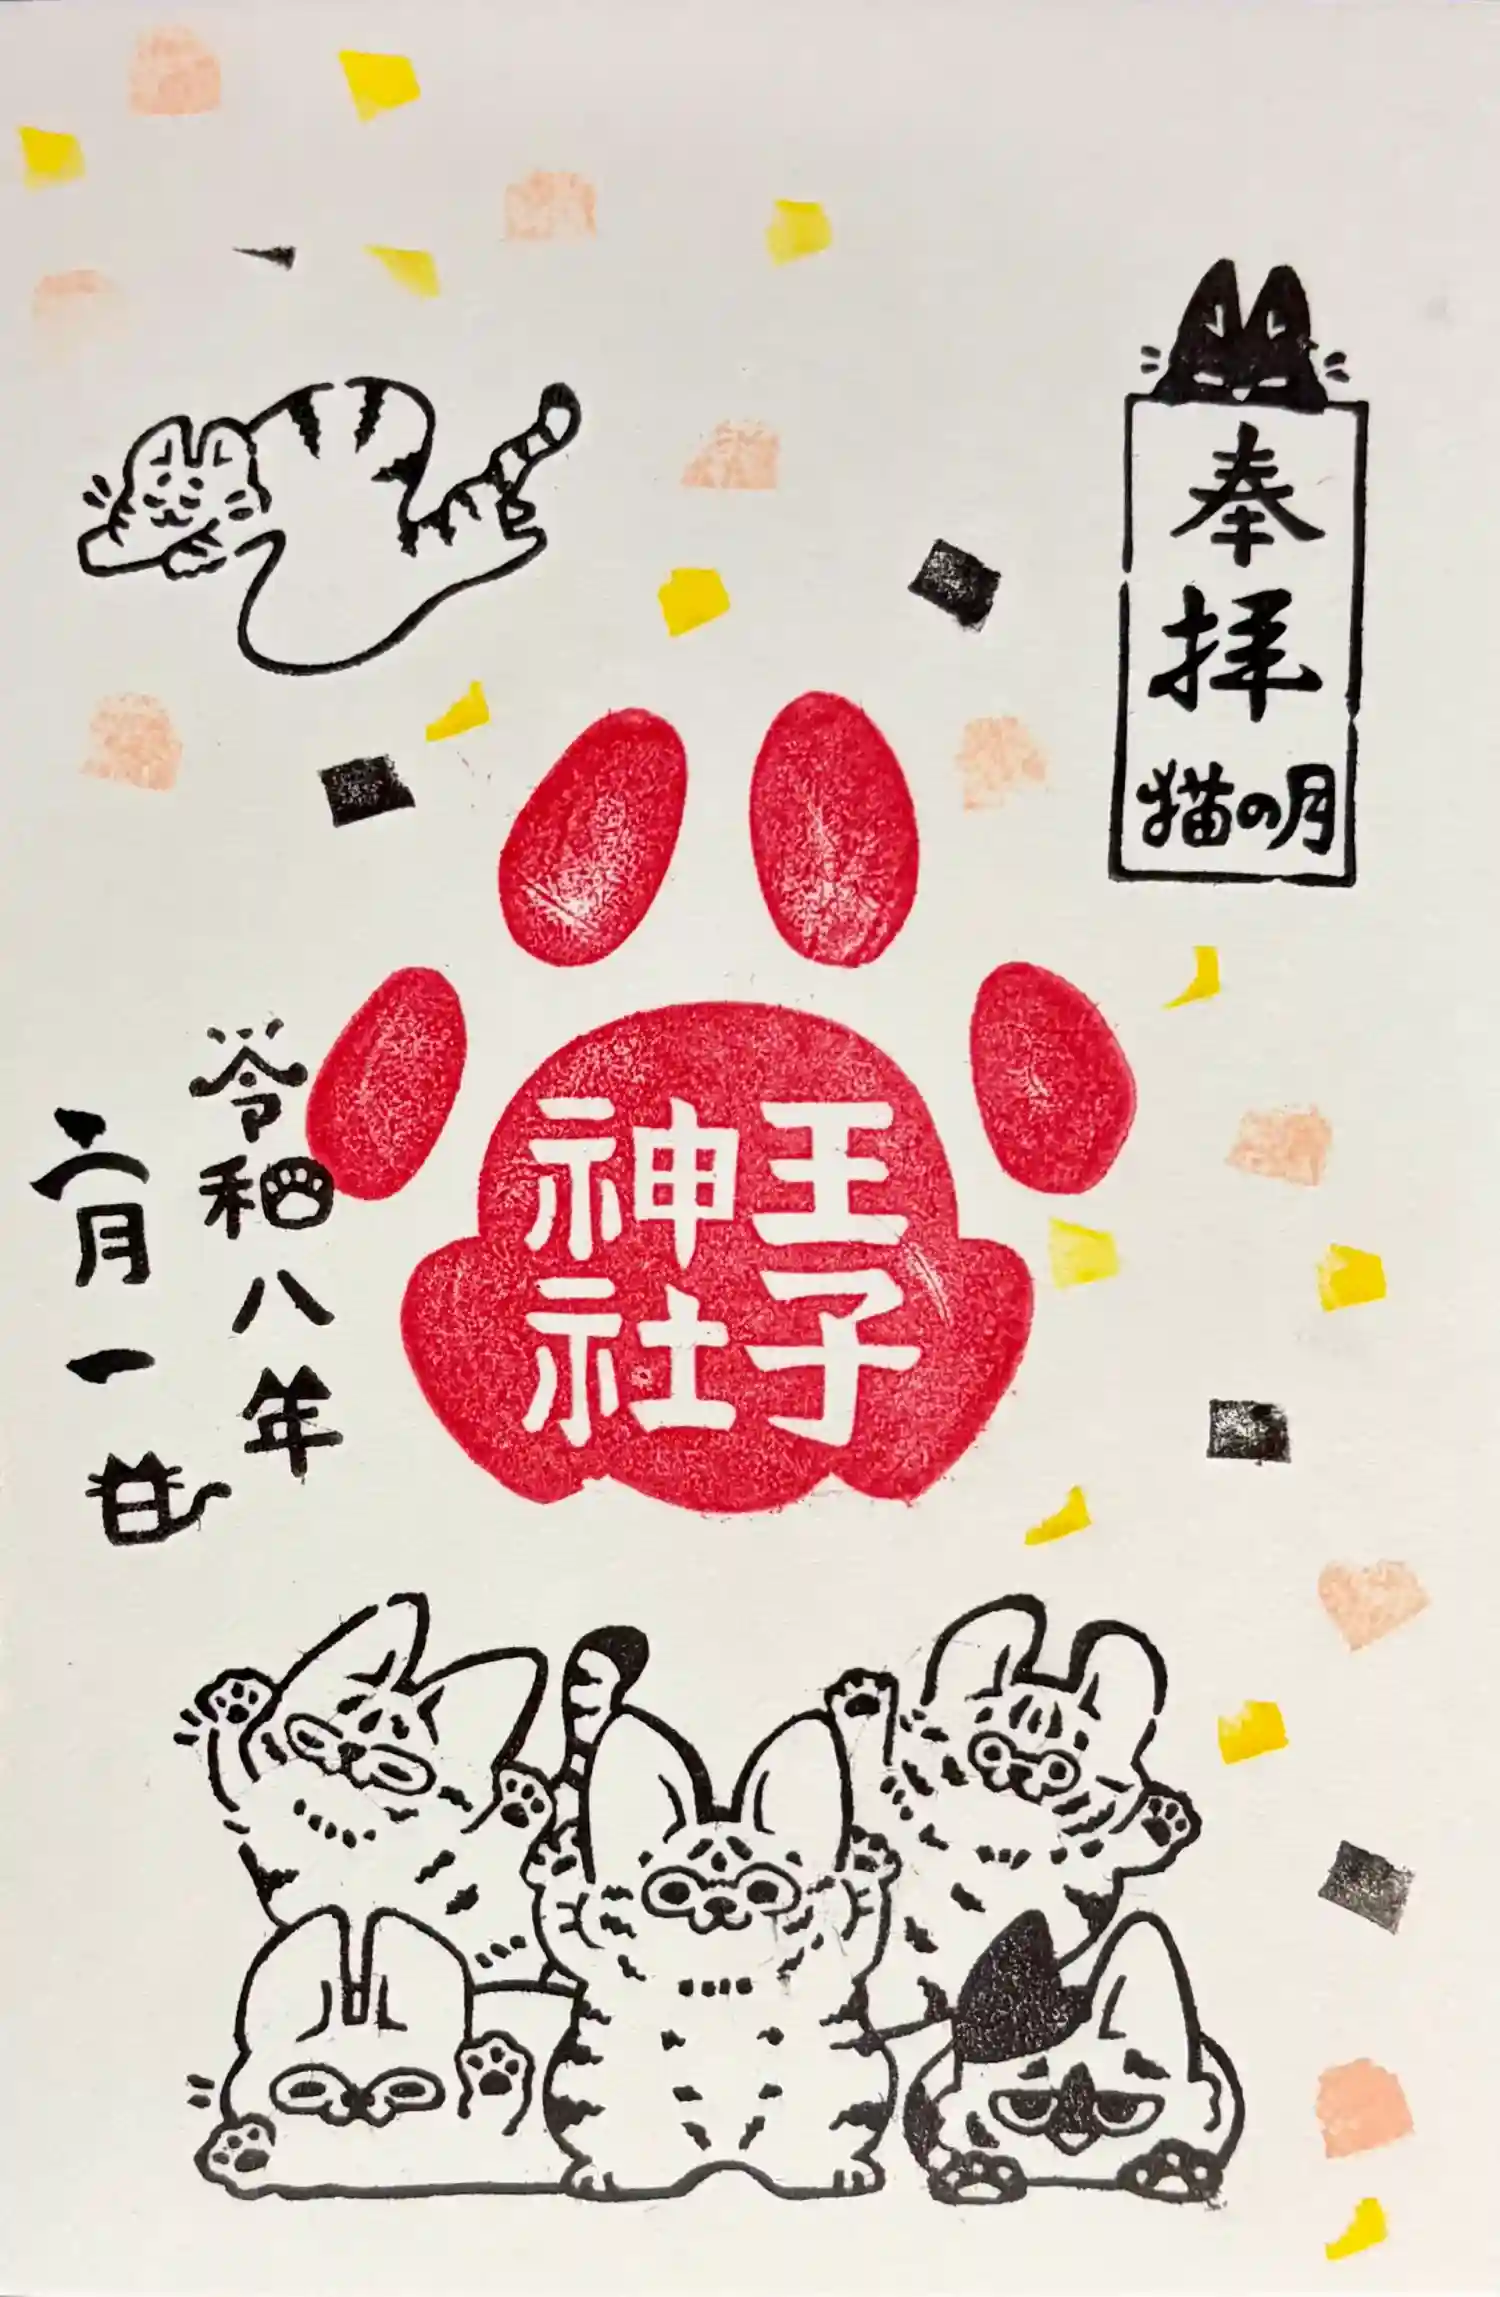 奉拝
猫の月
王子
神社
令和八年
二月一日